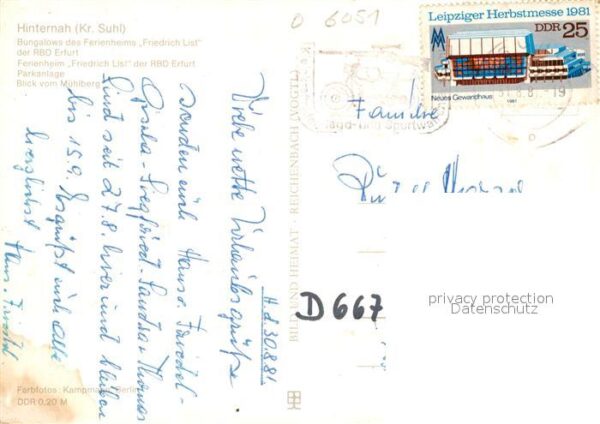 Hinternah (Kr. Suhl)
Bungalows des Ferienheims „Friedrich List"
der RBD Erfurt
Ferienheim „Friedrich List" der RBD Erfurt
Parkanlage
Blick vom Mühlberg
H. d. 30.8.81
Viele nette Urlaubsgrüße
senden euch Hans u. Friedel -
Gisela - Siegfried - Sandra + Thomas
Sind seit 27.8. hier und bleiben
bis 15.9. Es grüßt euch alle
herzlichst
Hans, Friedel
Farbfotos: Kampmann, Berlin
DDR 0,20 M
BILD UND HEIMAT · REICHENBACH (VOGTL)
0 6051
Leipziger Herbstmesse 1981
DDR 25
Neues Gewandhaus
1981
Jagd- und Sportwaffen
Familie
D667
privacy protection
Datenschutz